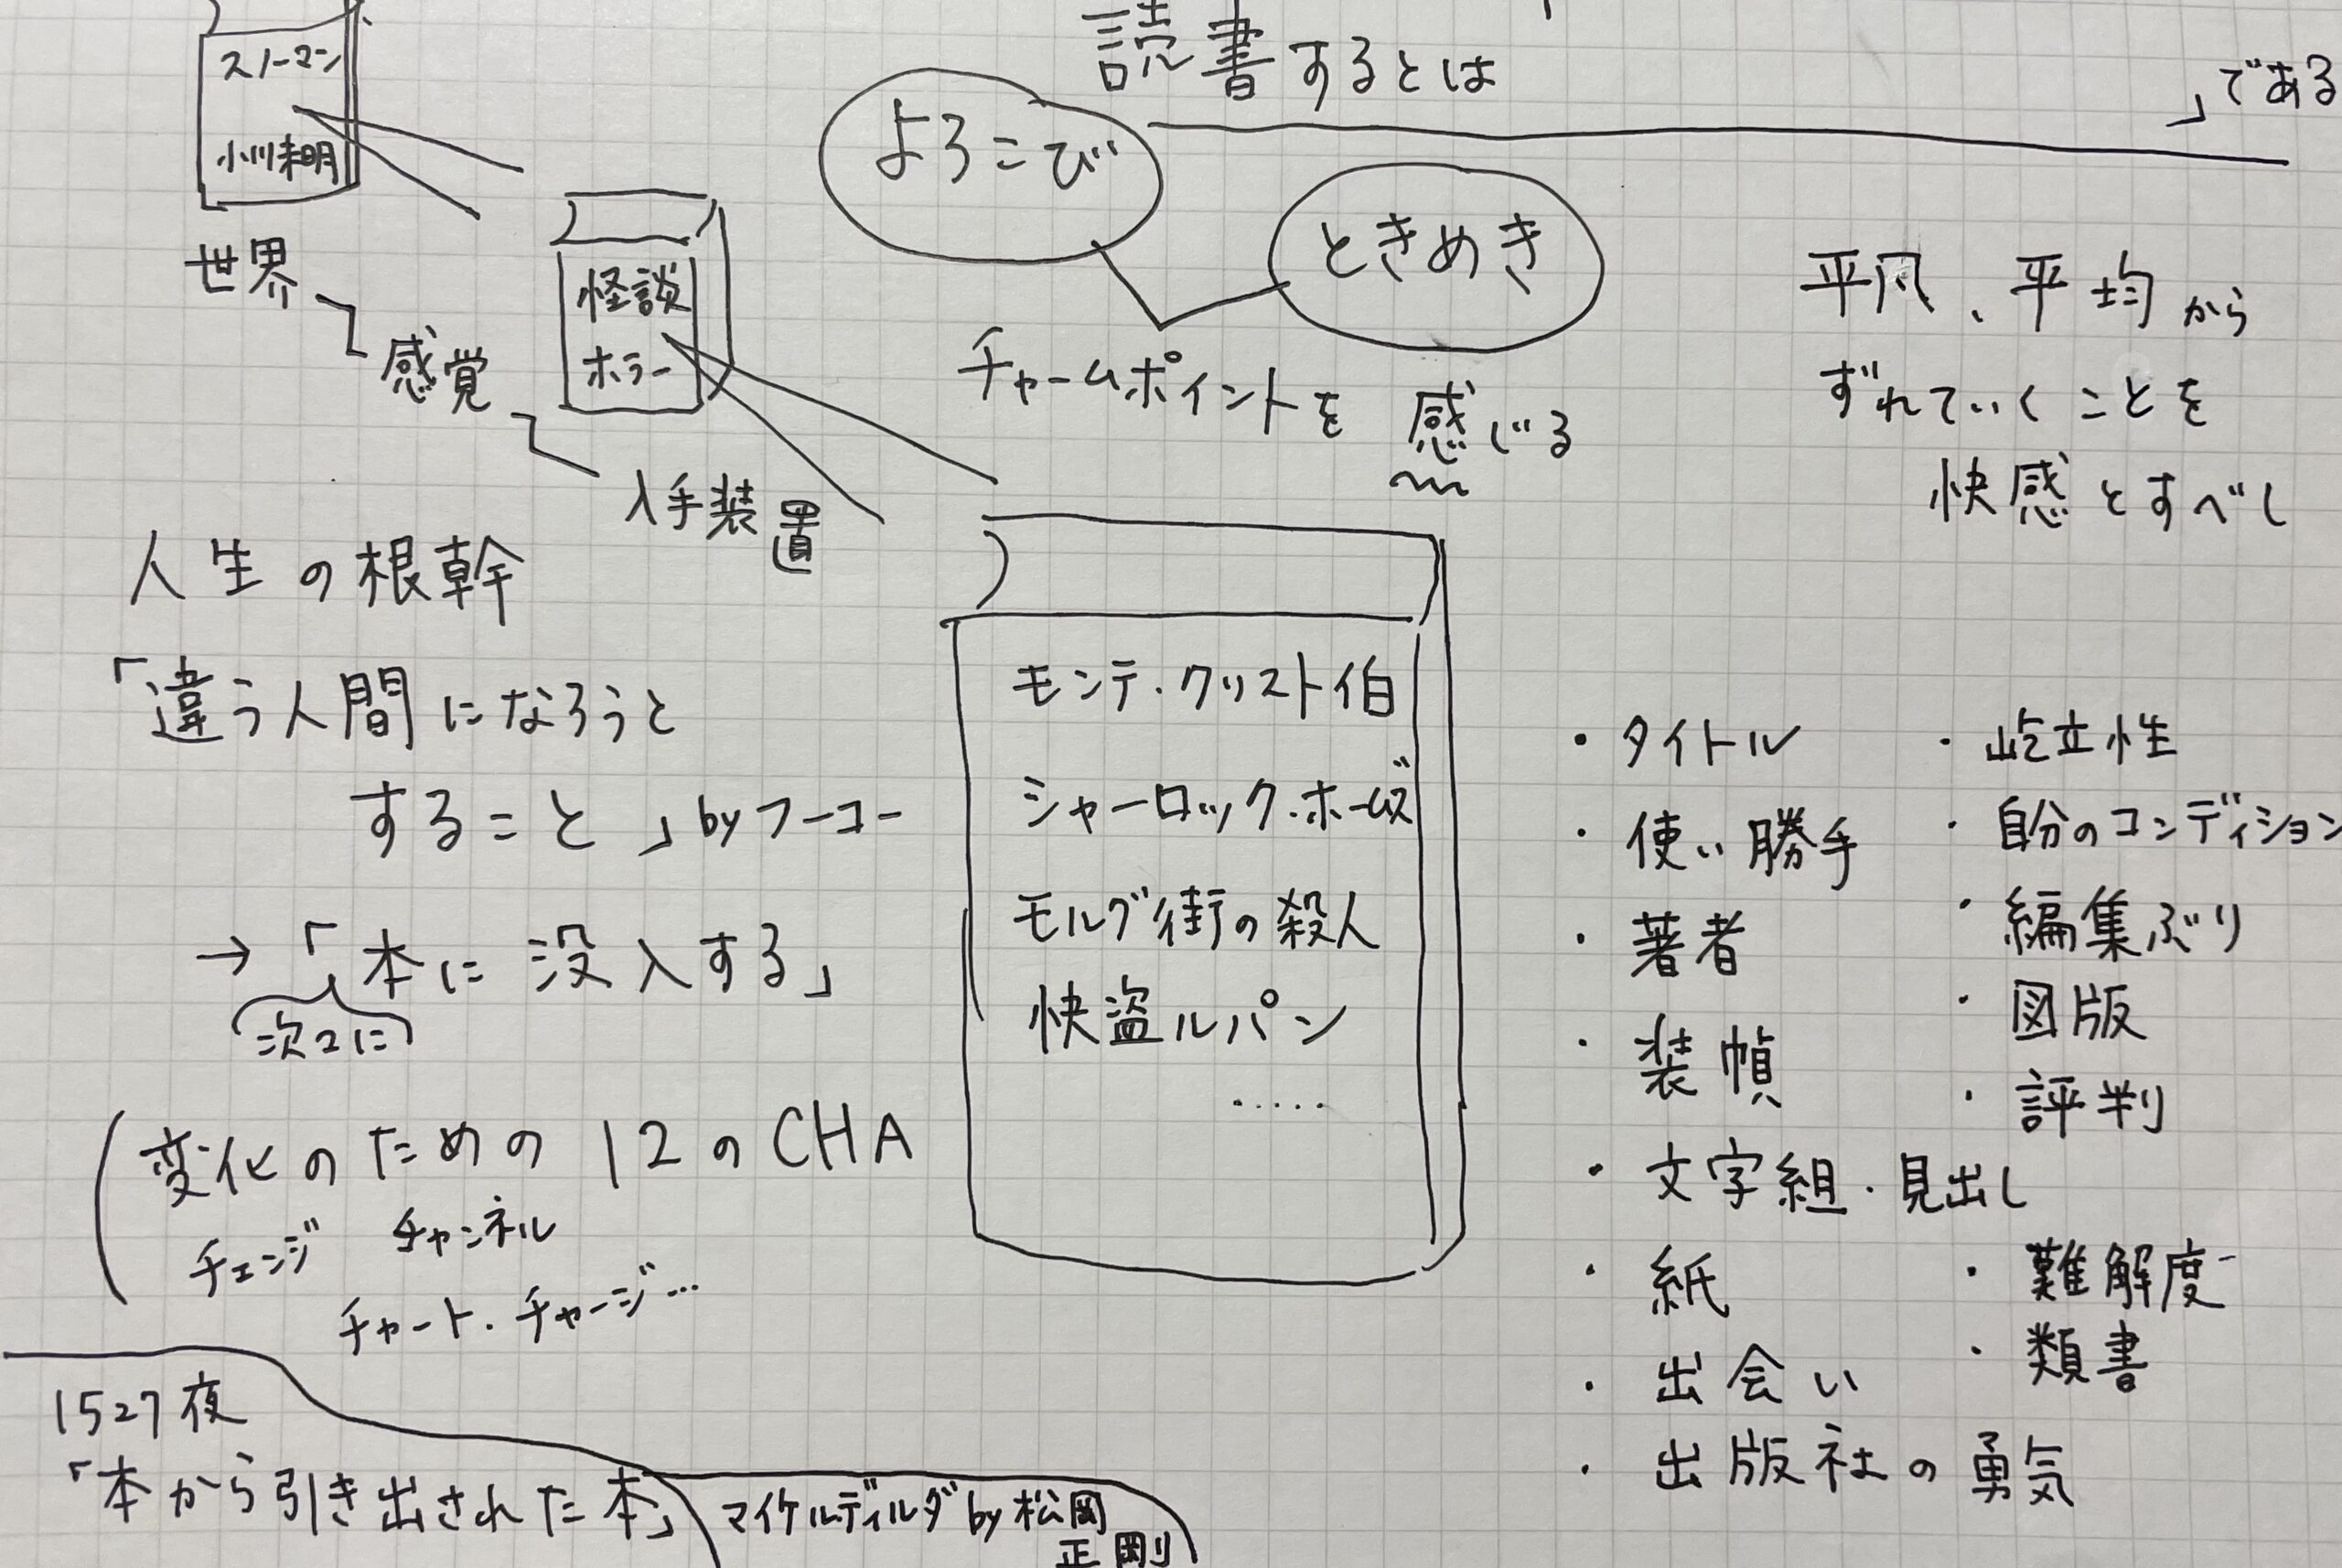 スノーマン
小川未明
世界
感覚
入手装置
怪談
ホラー
読書するとは
」である
よろこび
ときめき
チャームポイントを感じる
平凡、平均から
ずれていくことを
快感とすべし
人生の根幹
「違う人間になろうと
すること」byフーコー
→「本に没入する」
次々に
変化のための12のCHA
チェンジ チャンネル
チャート・チャージ…
モンテ・クリスト伯
シャーロック・ホームズ
モルグ街の殺人
快盗ルパン
・・・・・
・タイトル
・使い勝手
・著者
・装幀
・文字組・見出し
・紙
・出会い
・出版社の勇気
・屹立性
・自分のコンディション
・編集ぶり
・図版
・評判
・難解度
・類書
1527夜
「本から引き出された本」
マイケルディルダby松岡
正剛